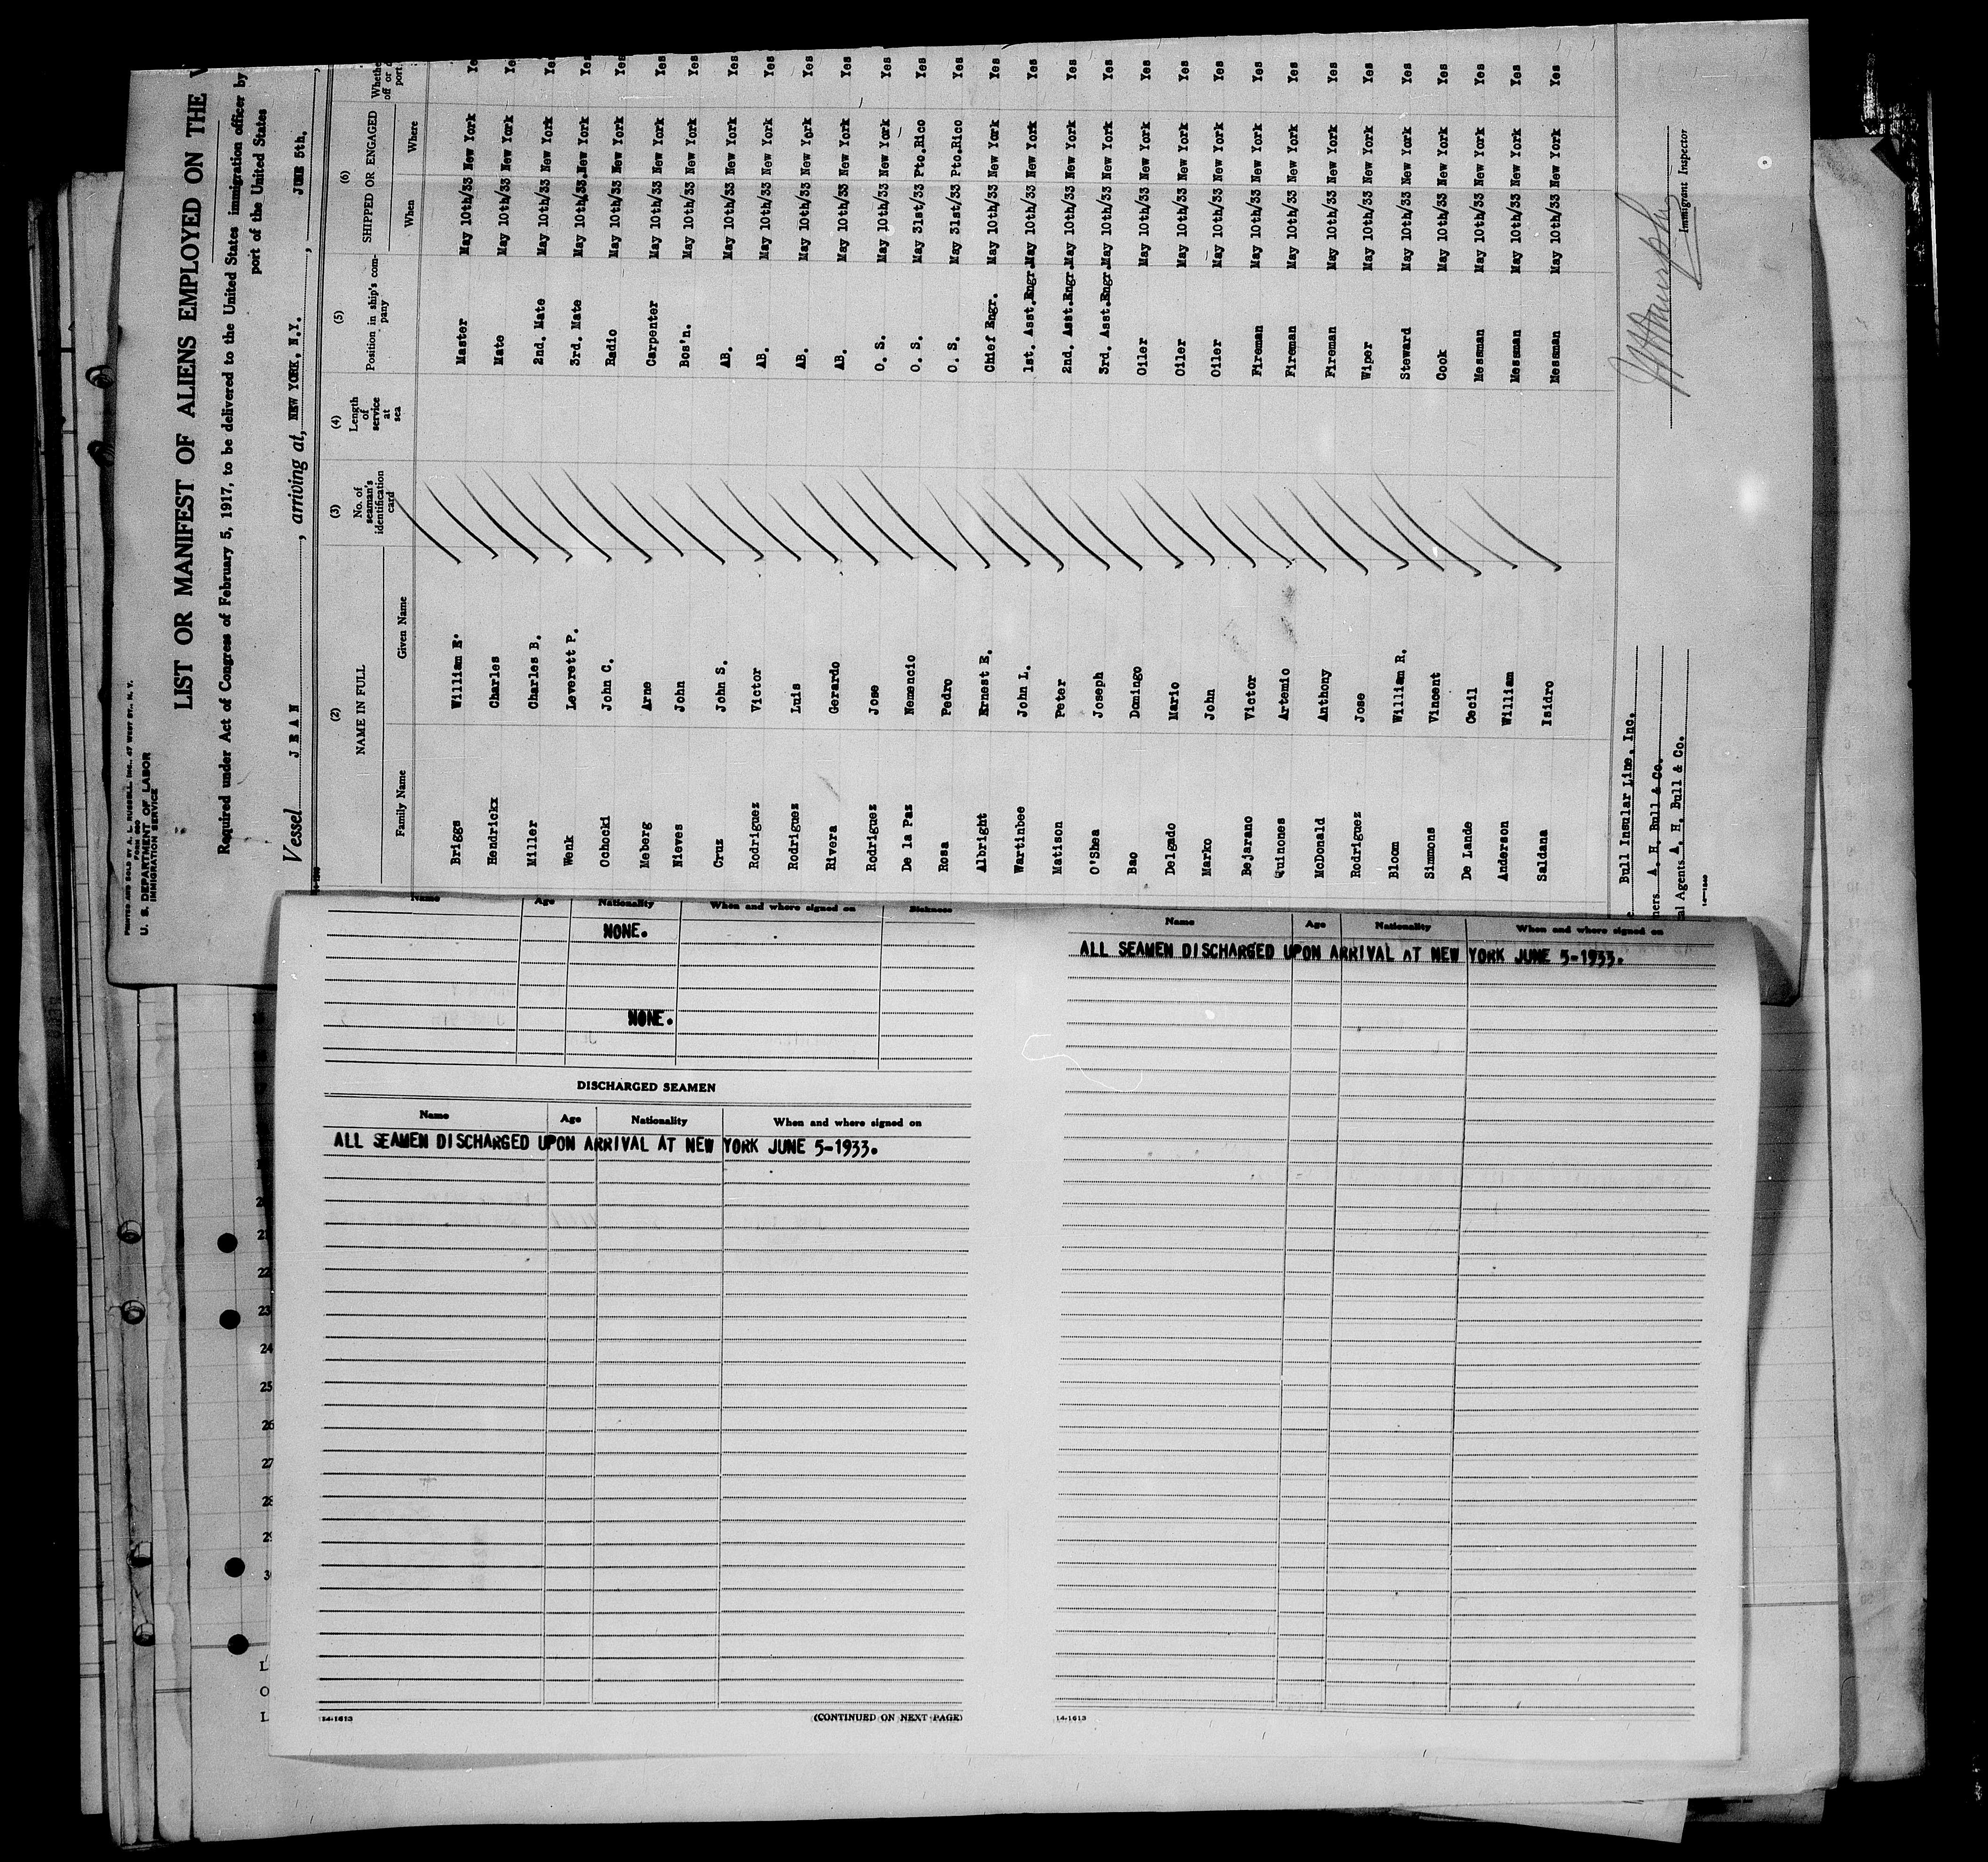 PRINTED AND SOLD BY A. L. RUSSELL, INC., 47 WEST ST., N. Y.
FORM 680
U. S. DEPARTMENT OF LABOR
IMMIGRATION SERVICE
LIST OR MANIFEST OF ALIENS EMPLOYED ON THE
Required under Act of Congress of February 5, 1917, to be delivered to the United States immigration officer by
port of the United States
Vessel JEAN, arriving at, NEW YORK, N.Y., JUNE 5th,
(2) (3) (4) (5) (6)
NAME IN FULL No. of seaman's identification card Length of service at sea Position in ship's company SHIPPED OR ENGAGED
Family Name Given Name When Where
Briggs William E. Master May 10th/33 New York Ye
Hendrickx Charles Mate May 10th/33 New York Ye
Miller Charles B. 2nd. Mate May 10th/33 New York Ye
Wenk Leverett P. 3rd. Mate May 10th/33. New York Yes
Ochocki John C. Radio May 10th/33 New York Yes
Meberg Arne Carpenter May 10th/33 New York Yes
Nieves John Bos'n. May 10th/33 New York Yes
Cruz John S. AB. May 10th/33 New York Yes
Rodriguez Victor AB. May 10th/33 New York Yes
Rodriguez Luis AB. May 10th/33 New York Yes
Rivera Gerardo AB. May 10th/33 New York Yes
Rodriguez Jose O. S. May 10th/33 New York Yes
De la Paz Nemencio O. S. May 31st/33 Pto.Rico Yes
Rosa Pedro O. S. May 31st/33 Pto.Rico Yes
Albright Ernest E. Chief Engr. May 10th/33 New York Yes
Wartinbee John L. 1st. Asst.Engr. May 10th/33 New York Yes
Matison Peter 2nd. Asst.Engr. May 10th/33 New York Yes
O'Shea Joseph 3rd. Asst.Engr. May 10th/33 New York Yes
Bao Domingo Oiler May 10th/33 New York Yes
Delgado Mario Oiler May 10th/33 New York Yes
Marko John Oiler May 10th/33 New York Yes
Bejarano Victor Fireman May 10th/33 New York Yes
Quinones Artemio Fireman May 10th/33 New York Yes
McDonald Anthony Fireman May 10th/33 New York Yes
Rodriguez Jose Wiper May 10th/33 New York Yes
Bloom William R. Steward May 10th/33 New York Yes
Simmons Vincent Cook May 10th/33 New York Yes
De Lande Cecil Messman May 10th/33 New York Yes
Anderson William Messman May 10th/33 New York Yes
Saldana Isidro Messman May 10th/33 New York Yes
Bull Insular Line, Inc.
ners A. H. Bull & Co.
al Agents A. H. Bull & Co.
Immigrant Inspector
Name Age Nationality When and where signed on Sickness
NONE.
NONE.
DISCHARGED SEAMEN
Name Age Nationality When and where signed on
ALL SEAMEN DISCHARGED UPON ARRIVAL AT NEW YORK JUNE 5-1933.
14-1613 (CONTINUED ON NEXT PAGE)
Name Age Nationality When and where signed on
ALL SEAMEN DISCHARGED UPON ARRIVAL AT NEW YORK JUNE 5-1933.
14-1613
21
22
23
24
25
26
27
28